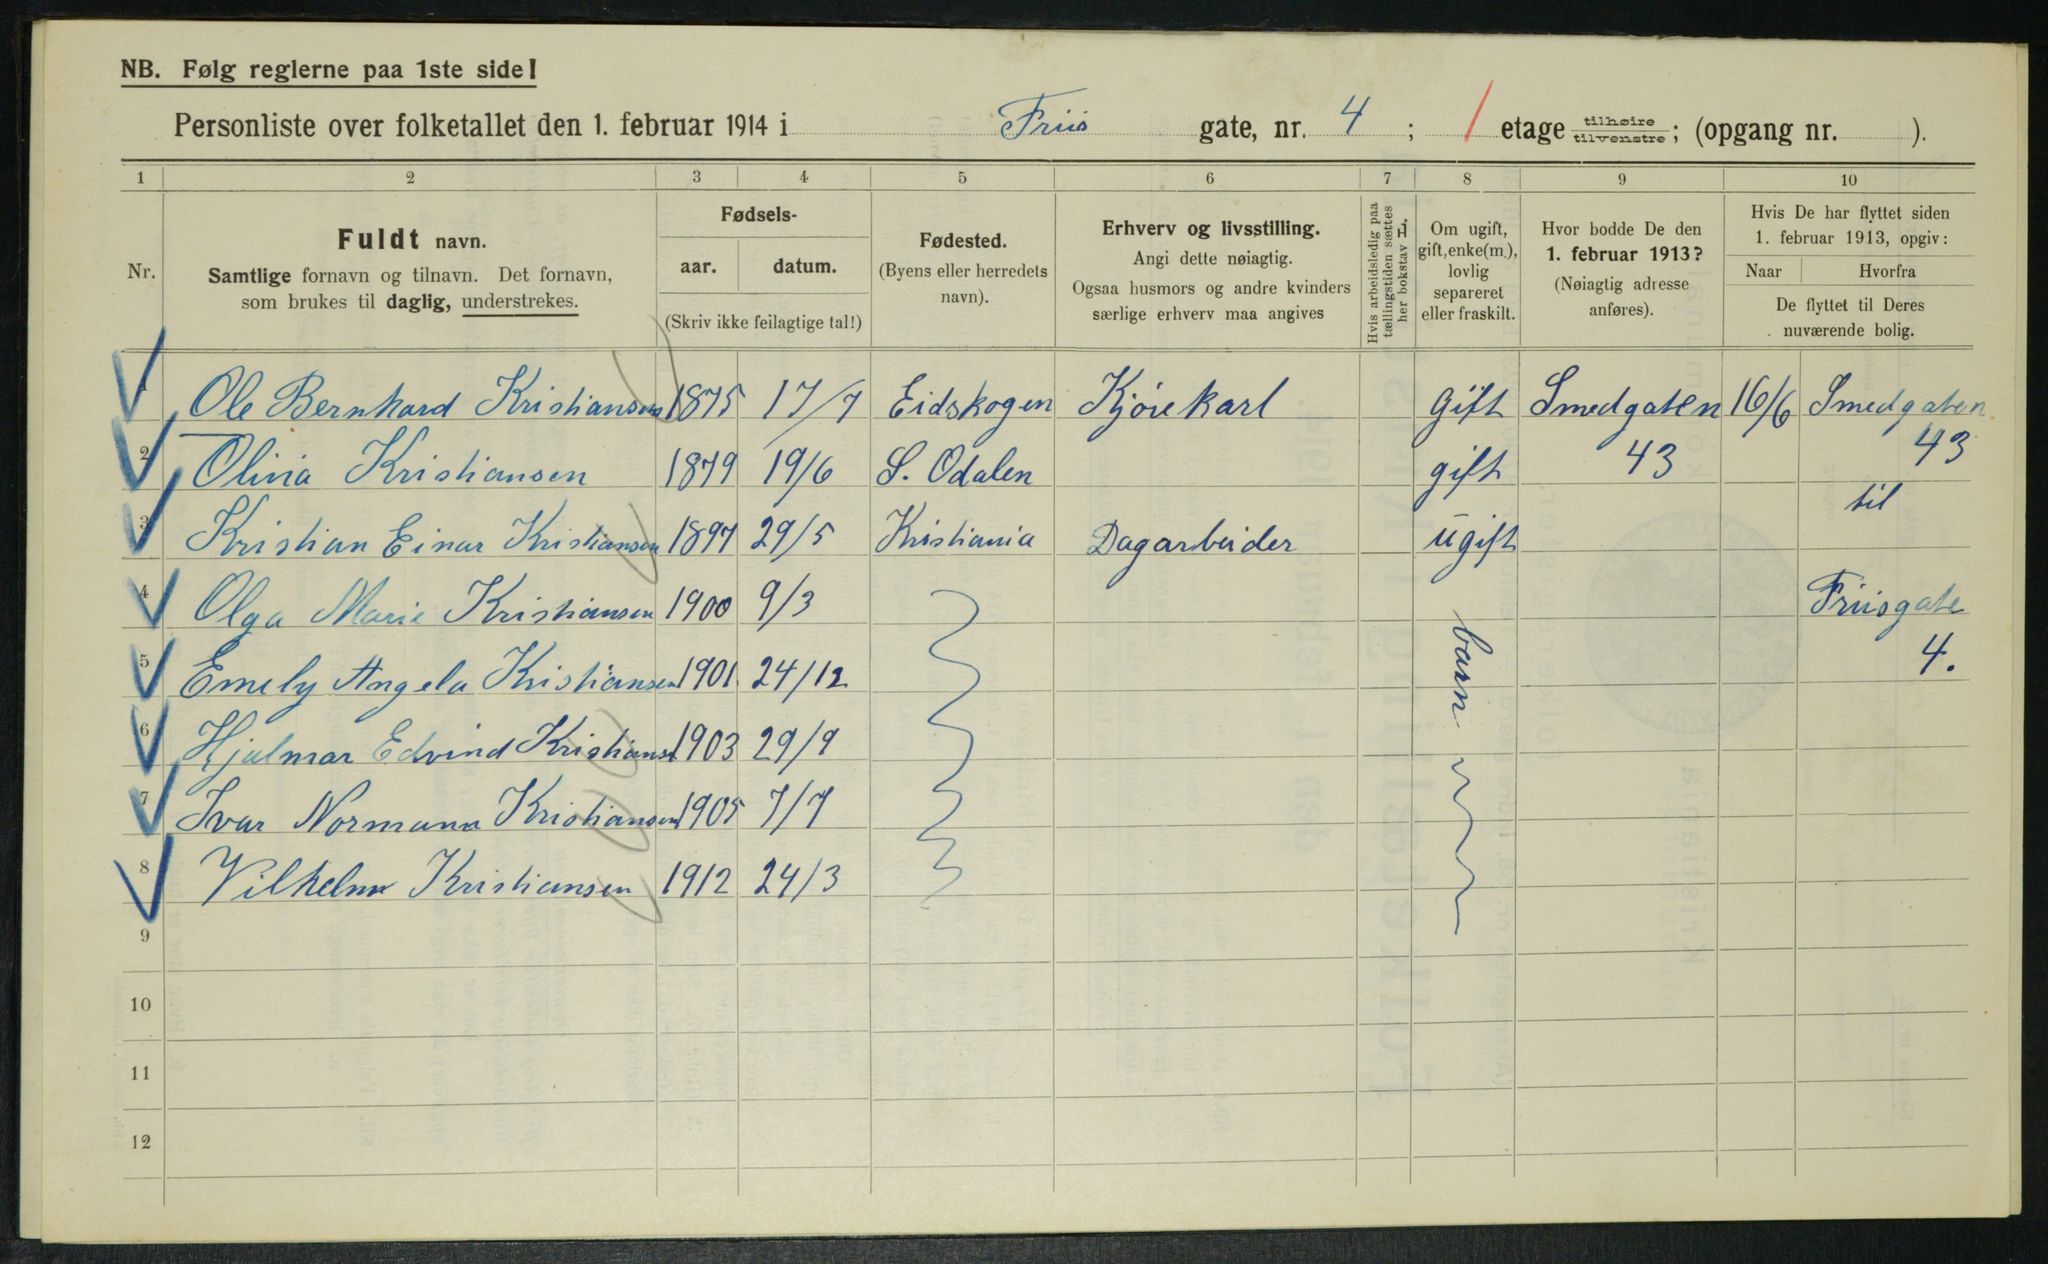 NB. Følg reglerne paa 1ste side!
Personliste over folketallet den 1. februar 1914 i Friis gate, nr. 4 ; 1 etage tilhøire/tilvenstre; (opgang nr. ).
1 2 3 4 5 6 7 8 9 10
Nr.
Fuldt navn.
Samtlige fornavn og tilnavn. Det fornavn,
som brukes til daglig, understrekes.
Fødsels-
aar. datum.
(Skriv ikke feilagtige tal!)
Fødested.
(Byens eller herredets
navn).
Erhverv og livsstilling.
Angi dette nøiagtig.
Ogsaa husmors og andre kvinders
særlige erhverv maa angives
Hvis arbeidsledig paa
tællingstiden sættes
her bokstav L,
Om ugift,
gift, enke(m.),
lovlig
separeret
eller fraskilt.
Hvor bodde De den
1. februar 1913?
(Nøiagtig adresse
anføres).
Hvis De har flyttet siden
1. februar 1913, opgiv:
Naar Hvorfra
De flyttet til Deres
nuværende bolig.
1 Ole Bernhard Kristiansen 1875 17/7 Eidskogen Kjørekarl Gift Smedgaten 16/6 Smedgaten
2 Olivia Kristiansen 1879 19/6 S. Odalen gift 43 43
til
3 Kristian Einar Kristiansen 1897 29/5 Kristiania Dagarbeider ugift
4 Olga Marie Kristiansen 1900 9/3 barn Friisgate
5 Emely Angela Kristiansen 1901 24/12 4.
6 Hjalmar Edvind Kristianse 1903 29/9
7 Ivar Normann Kristiansen 1905 7/7
8 Vilhelm Kristiansen 1912 24/3
9
10
11
12